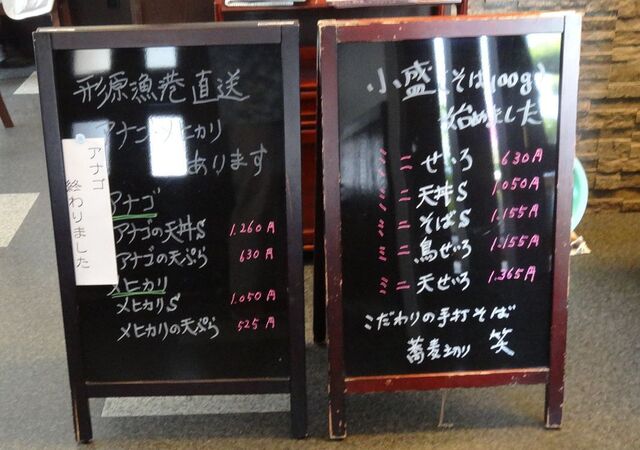 形原漁港直送
アナゴ・メヒカリ
あります
アナゴ
終わりました
アナゴ
アナゴの天丼S 1.260円
アナゴの天ぷら 630円
メヒカリ
メヒカリS 1.050円
メヒカリの天ぷら 525円
小盛(そば100g)
始めました
〃 ミニ せいろ 630円
〃 ミニ 天丼S 1.050円
〃 ミニ そばS 1.155円
〃 ミニ 鳥せいろ 1.155円
〃 ミニ 天せいろ 1.365円
こだわりの手打そば
蕎麦切り 笑